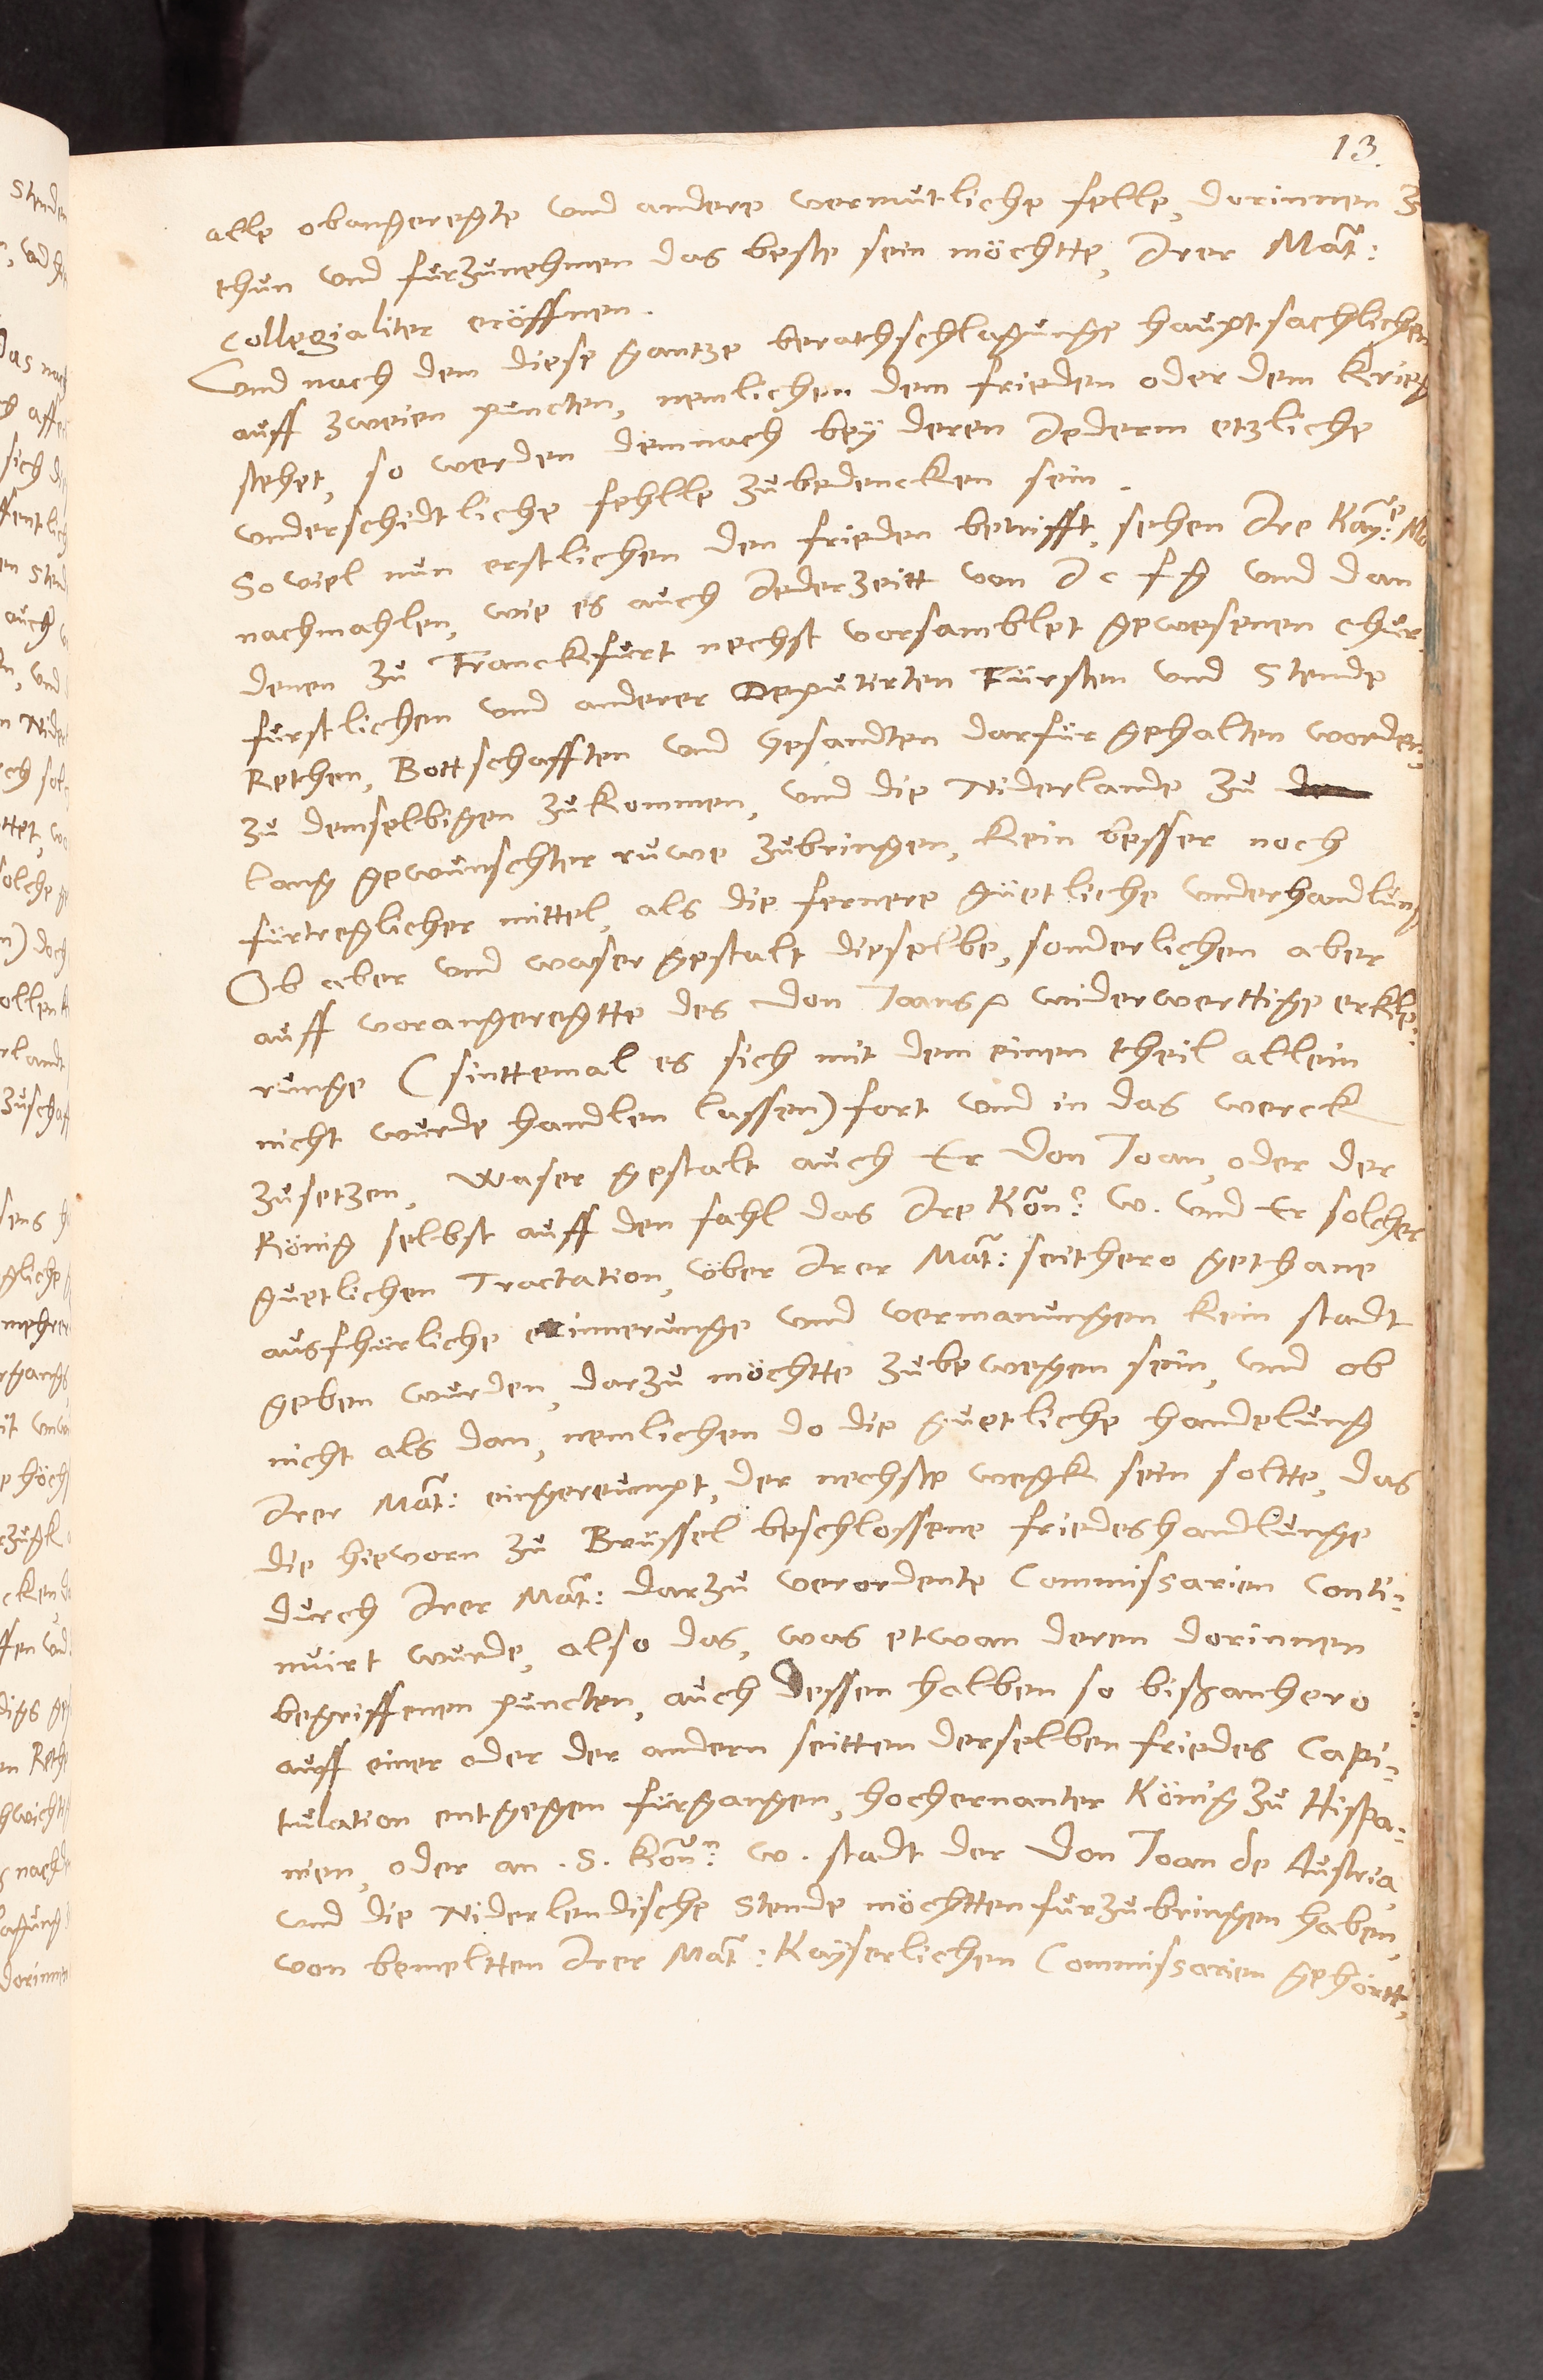 13.
alle obangeregte vnd andere vermutliche felle, dorinnen z
thun vnd furzunehmen das beste sein möchtte, Irer Mat:
Collegialiter eröffnen.
Vnd nach dem diese gantze berathschlagunge hauptsachlichen
auff zweien puncten, nemlichen dem frieden oder dem Krieg
stehet, so werden demnach bey deren Iederm etzliche
vnderschidtliche fehlle zubedencken sein.
So viel nun erstlichen den frieden betrifft, sehen Ire Kay: Mt
nachmahlen, wie es auch Iederzeitt von I c f g vnd dan
denen zu Franckfurt nechst vorsamblet gewesenen chur
furstlichen vnd anderer Deputirten Fürsten vnd Stende
Rethen, Bottschafften vnd Gesandten darfür gehalten worden,
zu demselbigen zukommen, vnd die Niderlande zu
lang gewunschter ruwe zubringen, kein besser noch
fürtreglicher mittel, als die fernere güetliche vnderhandlung
Ob aber vnd waser gestalt dieselbe, sonderlichen aber
auff vorangeregtte des Don Joans widerwerttige erkle-
runge (sinttemal es sich mit dem einen theil allein
nicht wurde handlen lassen) fort vnd in das werck
zusetzen, Waser gestalt auch Er Don Joan, oder der
König selbst auff den fahl das Ire Kön: W. vnd Er solcher
guetlichen Tractation, vber Irer Mat: seithero gethane
ausfhürliche erinnerunge vnd vermanungen kein stadt
geben wurden, darzu möchtte zubewegen sein, vnd ob
nicht als dan, nemlichen do die guetliche handelung
Irer Mat: eingereumpt, der nechste wegk sein soltte, das
die hievorn zu Brüssel beschlossene friedeshandlunge
durch Irer Mat: darzu verordente Commissarien Conti-
nuirt wurde, also das, was etwan deren dorinnen
begriffenen puncten, auch dessen halben so bißanhero
auff einer oder der andern seitten derselben friedes Capi-
tulation entgegen fürgangen, hochernanter König zu Hispa-
nien, oder an . S. Kön: W. stadt der Don Joan de Austria
vnd die Niderlendische Stende möchtten furzubringen haben,
von bemeltten Irer Mat: Kayserlichen Commissarien gehörtt,